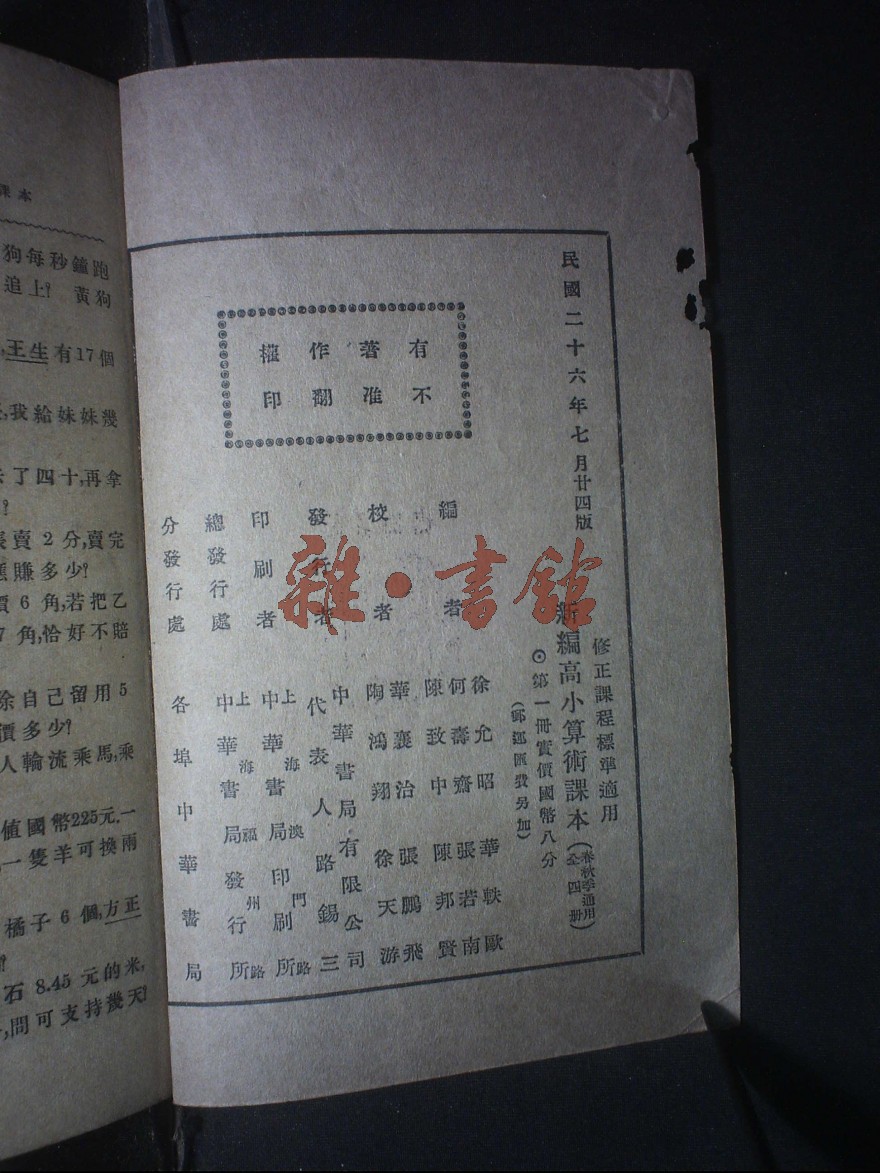 民國二十六年七月廿四版
修正課程標準適用
新編高小算術課本(春秋季通用 全四冊)
⊙第一冊實價國幣八分
(郵運匯費另加)
有著作權
不准翻印
編者 徐允昭 華軼歐
何壽齋 張若南
陳致中 陳邦賢
校者 華襄治 張鵬飛
陶鴻翔 徐天游
發行者 中華書局有限公司
代表人 路錫三
印刷者 上海澳門路
中華書局印刷所
總發行處 上海福州路
中華書局發行所
分發行處 各埠中華書局
雜·書館
課本
狗每秒鐘跑
追上? 黃狗
王生有17個
我給妹妹幾
了四十,再拿
?
賣 2 分,賣完
賺多少?
價 6 角,若把乙
7 角,恰好不賠
余自己留用 5
價多少?
人輪流乘馬,乘
值國幣225元.一
一隻羊可換兩
橘子 6 個,方正
?
石 8.45 元的米,
,問可支持幾天?